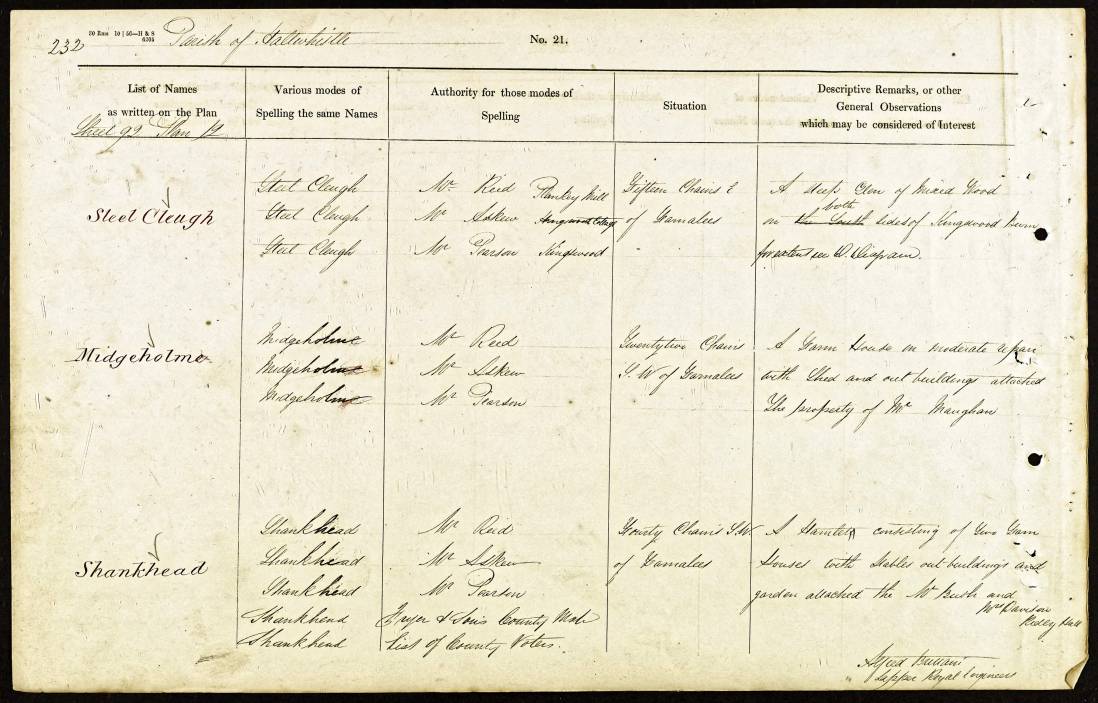 232
30 Rms 10 | 56—H & S
6305
Parish of Haltwhistle
No. 21.
List of Names
as written on the Plan
Sheet 92 Plan 12
Various modes of
Spelling the same Names
Authority for those modes of
Spelling
Situation
Descriptive Remarks, or other
General Observations
which may be considered of Interest
Steel Cleugh
Steel Cleugh
Steel Cleugh
Steel Cleugh
Mr Reed Plankey Mill
Mr Askew
Mr Pearson Kingswood
Fifteen Chains E
of Gamalees
A steep Glen of Mixed Wood
both
on the South sides of Kingswood Burn
for extent see O. Diagram.
Midgeholme
Midgeholme
Midgeholme
Midgeholme
Mr Reed
Mr Askew
Mr Pearson
Twentytwo Chains
S.W of Gamalees
A Farm House in moderate repair
with Shed and out buildings attached
The property of Mr Maughan
Shankhead
Shankhead
Shankhead
Shankhead
Shankhend
Shankhend
Mr Reid
Mr Askew
Mr Pearson
Fryer & Sons County Map
List of County Voters.
Fourty Chains S.W.
of Gamalees
A Hamlet consisting of two Farm
Houses with Stables out buildings and
garden attached the Mr Bush and
Mrs Davison
Ridley Hall
Alfred
Sapper Royal Engineers